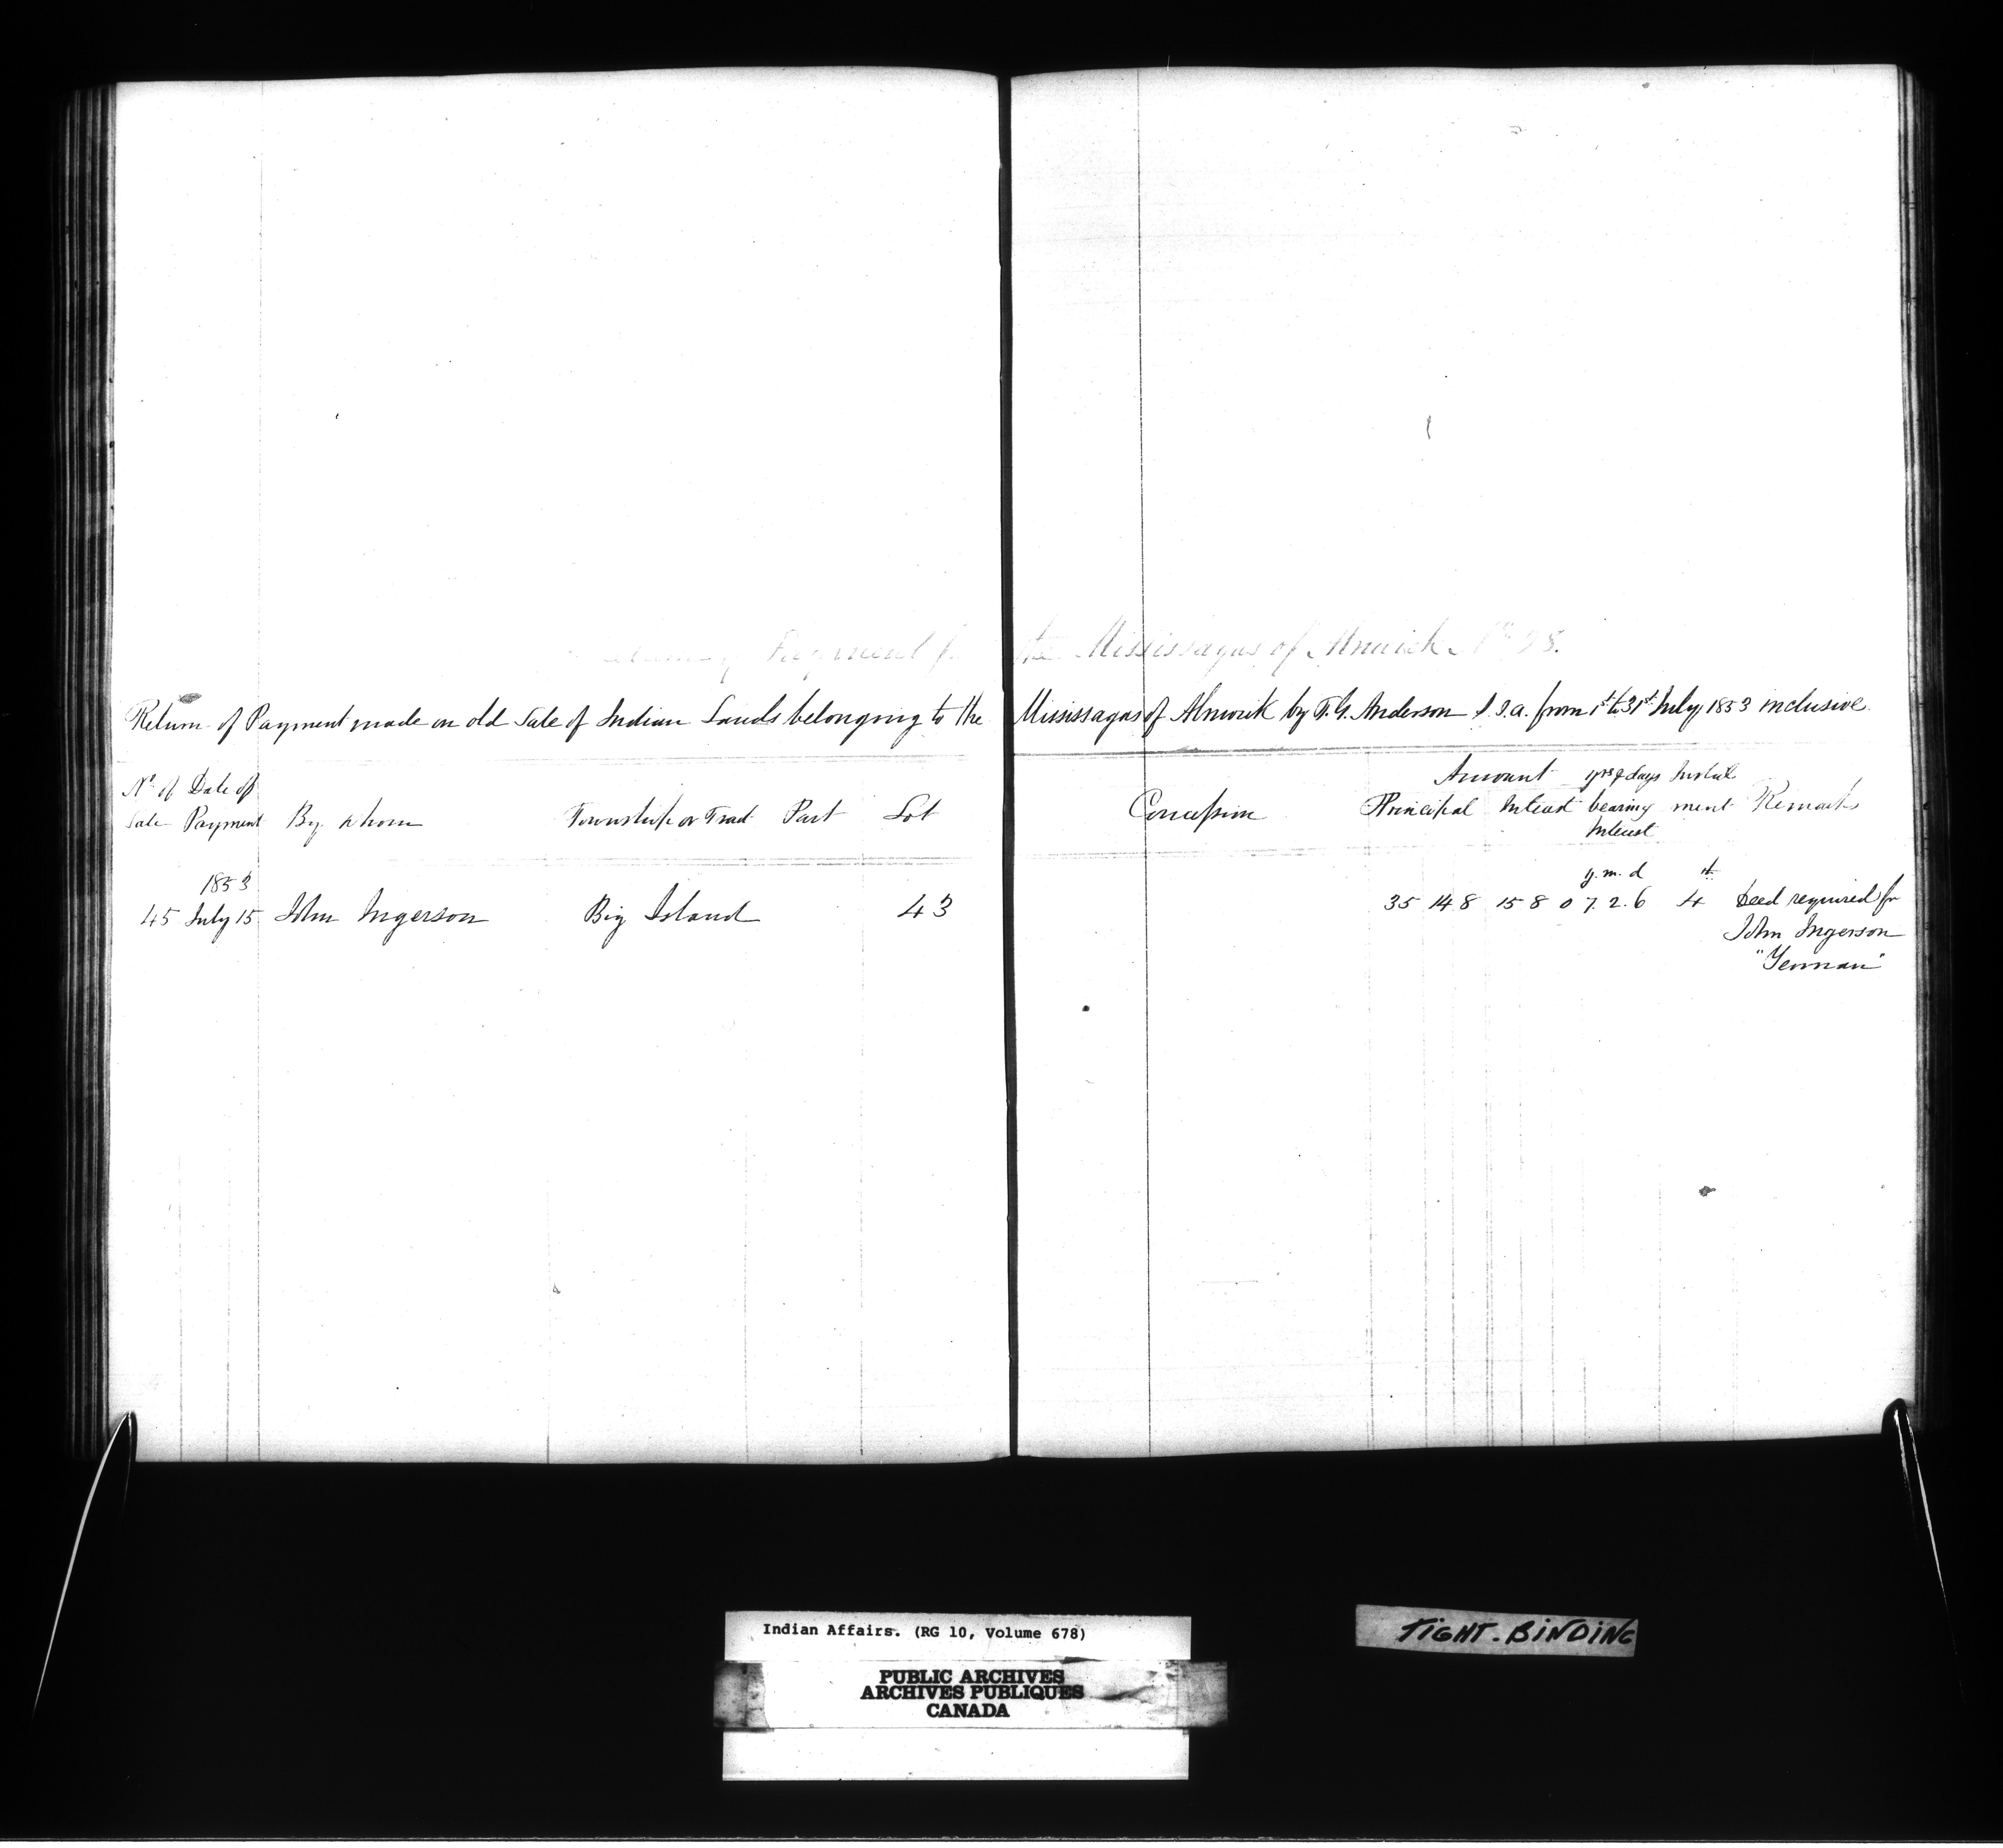 Payment the Mississagas of Alnwick No 28.
Return of Payment made on old Sale of Indian Lands belonging to the Mississagas of Alnwick by T. G. Anderson S. I. a. from 1st to 31st July 1853 inclusive
No of Date of Amount yrs & days Instal
Sale Payment By whom Township or Tract Part Lot Concession Principal Interest bearing ment Remarks
Interest
1853 y. m. d th
45 July 15 John Ingerson Big Island 43 35 14 8 15 8 0 7. 2. 6 4 Deed required for
John Ingerson
"Yeoman"
Indian Affairs. (RG 10, Volume 678)
PUBLIC ARCHIVES
ARCHIVES PUBLIQUES
CANADA
TIGHT-BINDING